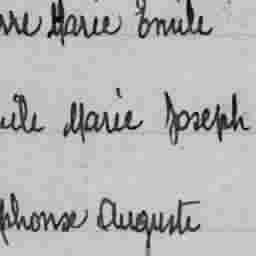 rre Marie Emile
ile Marie Joseph
phonse Auguste